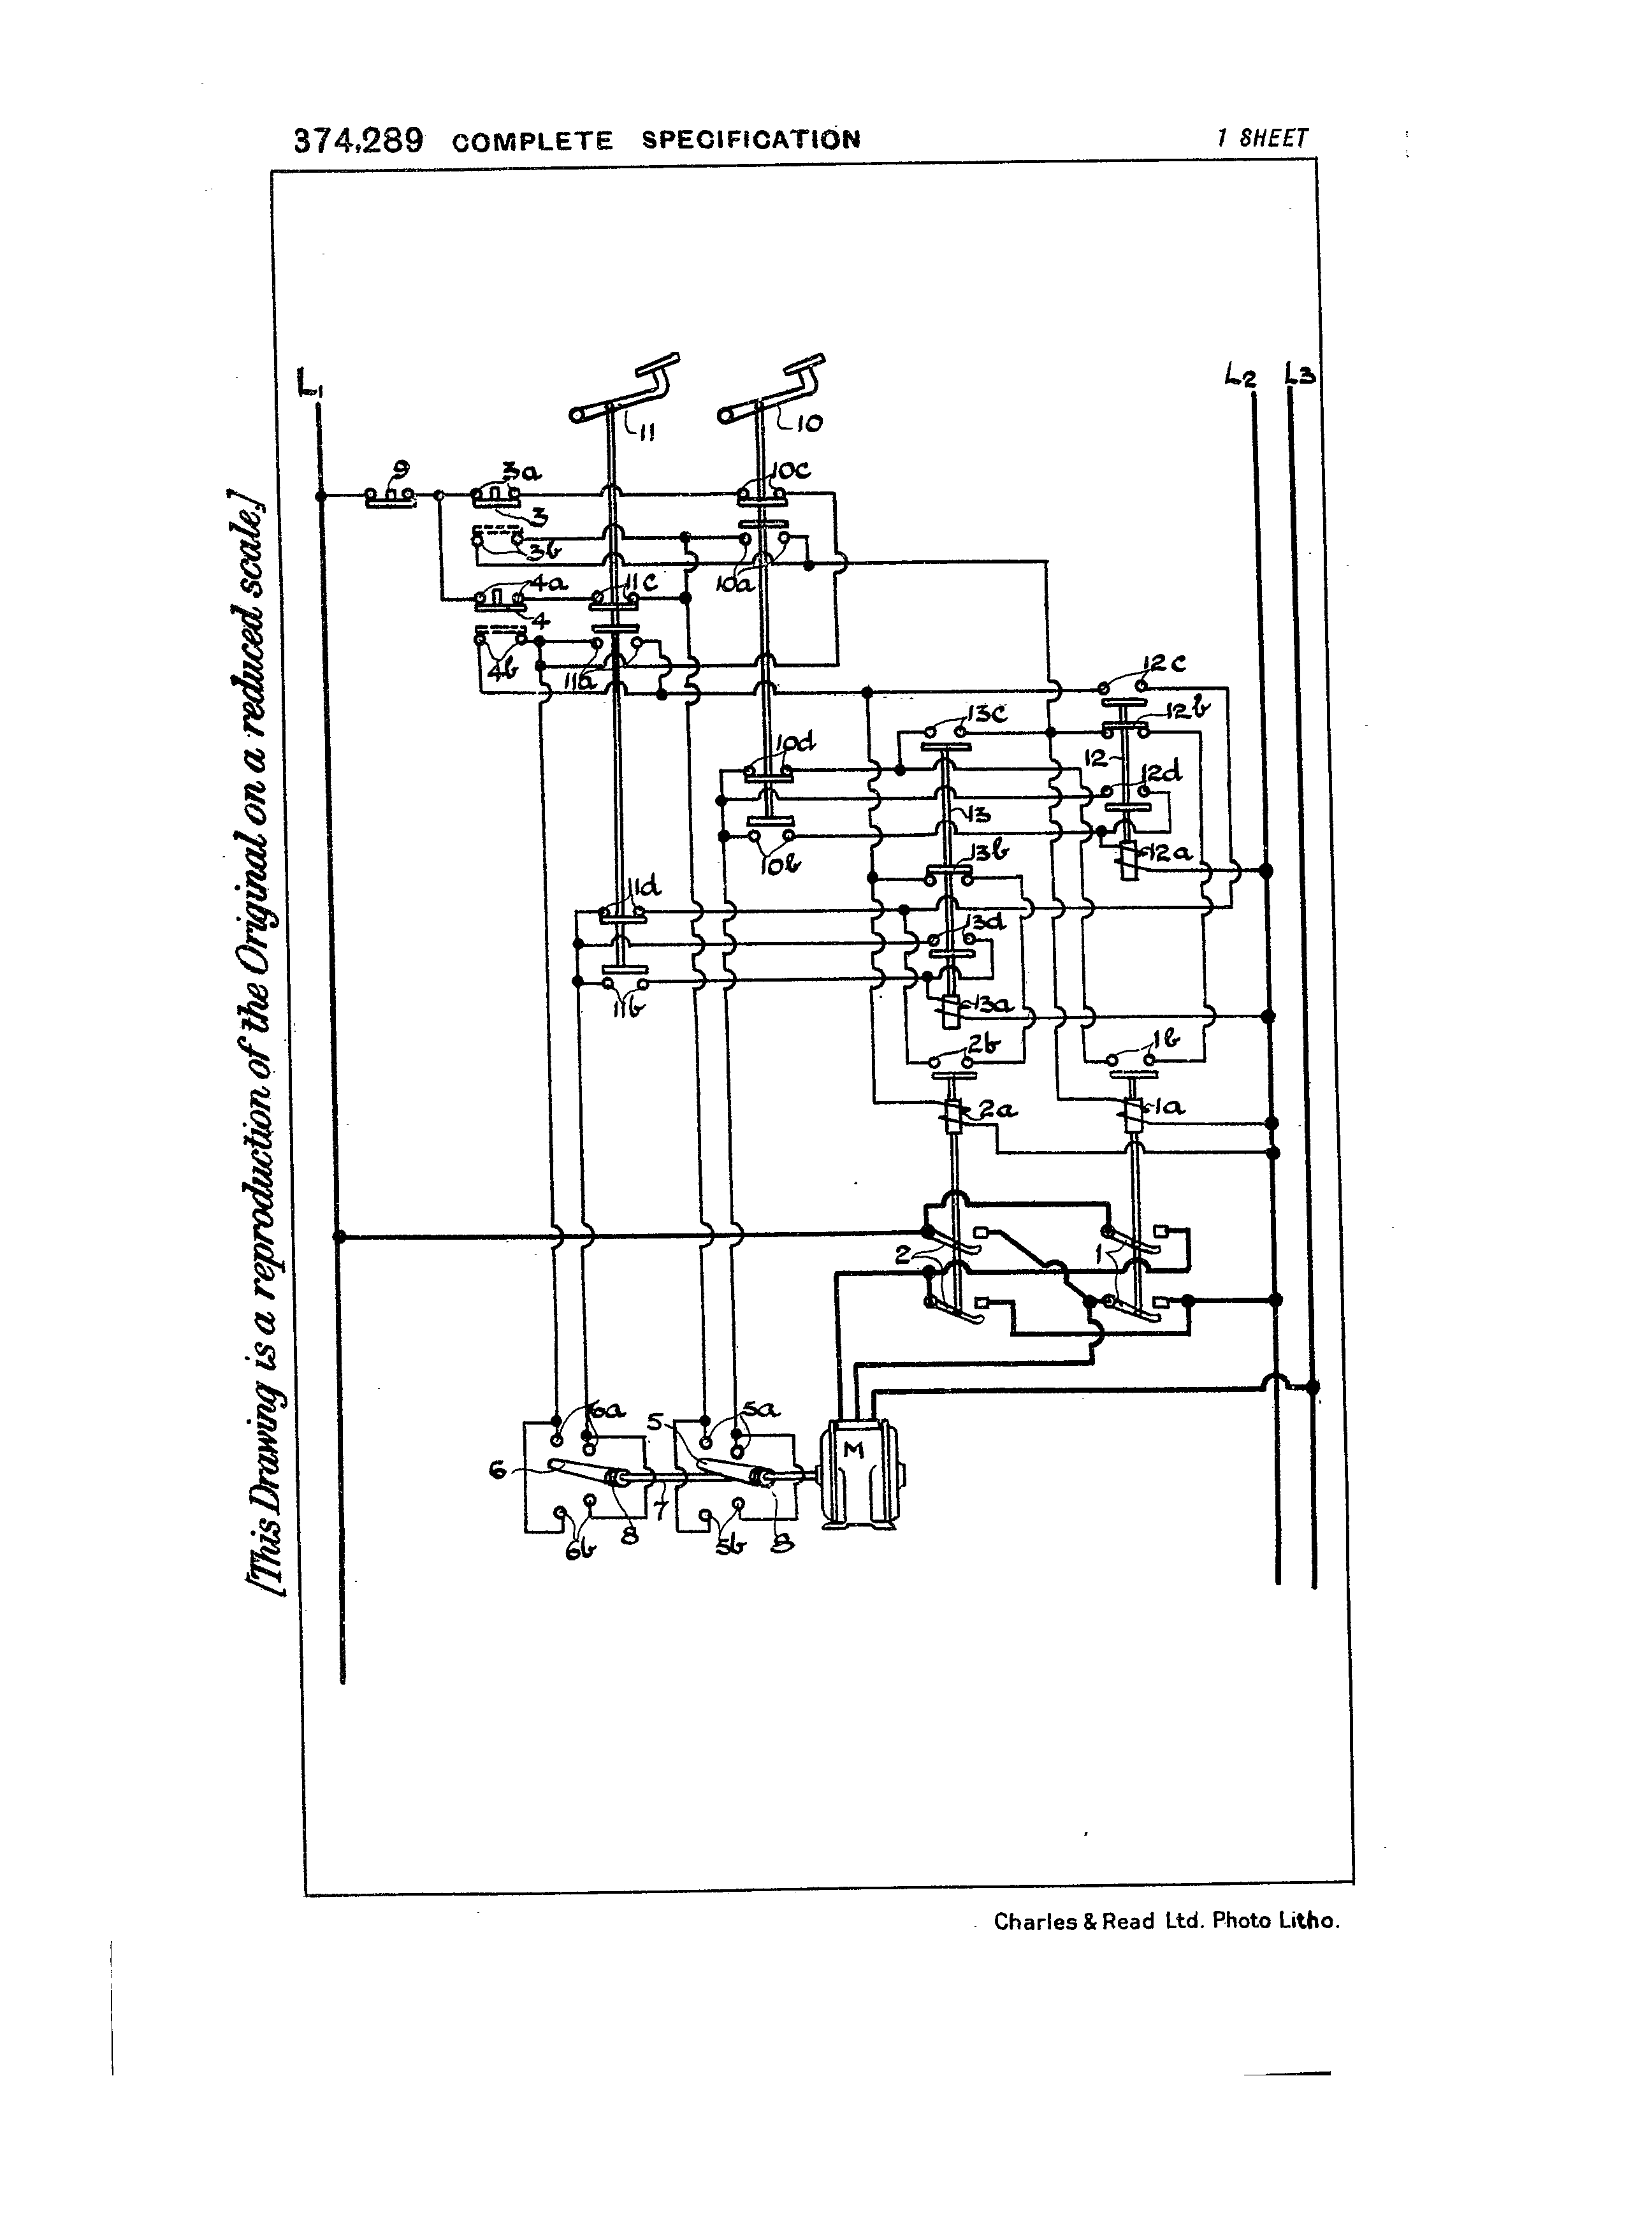 374,289 COMPLETE SPECIFICATION 1 SHEET
[This Drawing is a reproduction of the Original on a reduced scale.]
L1
L2 L3
11 10
9 3a 10c
3
3b
10a
4a 11c
4
4b
11a
12c
13c 12b
10d
12
12d
13
13b
12a
10b
11d
13d
11b
13a
2b 1b
2a 1a
2 1
6a 5 5a
M
6
7
8
6b 5b 8
Charles & Read Ltd. Photo Litho.